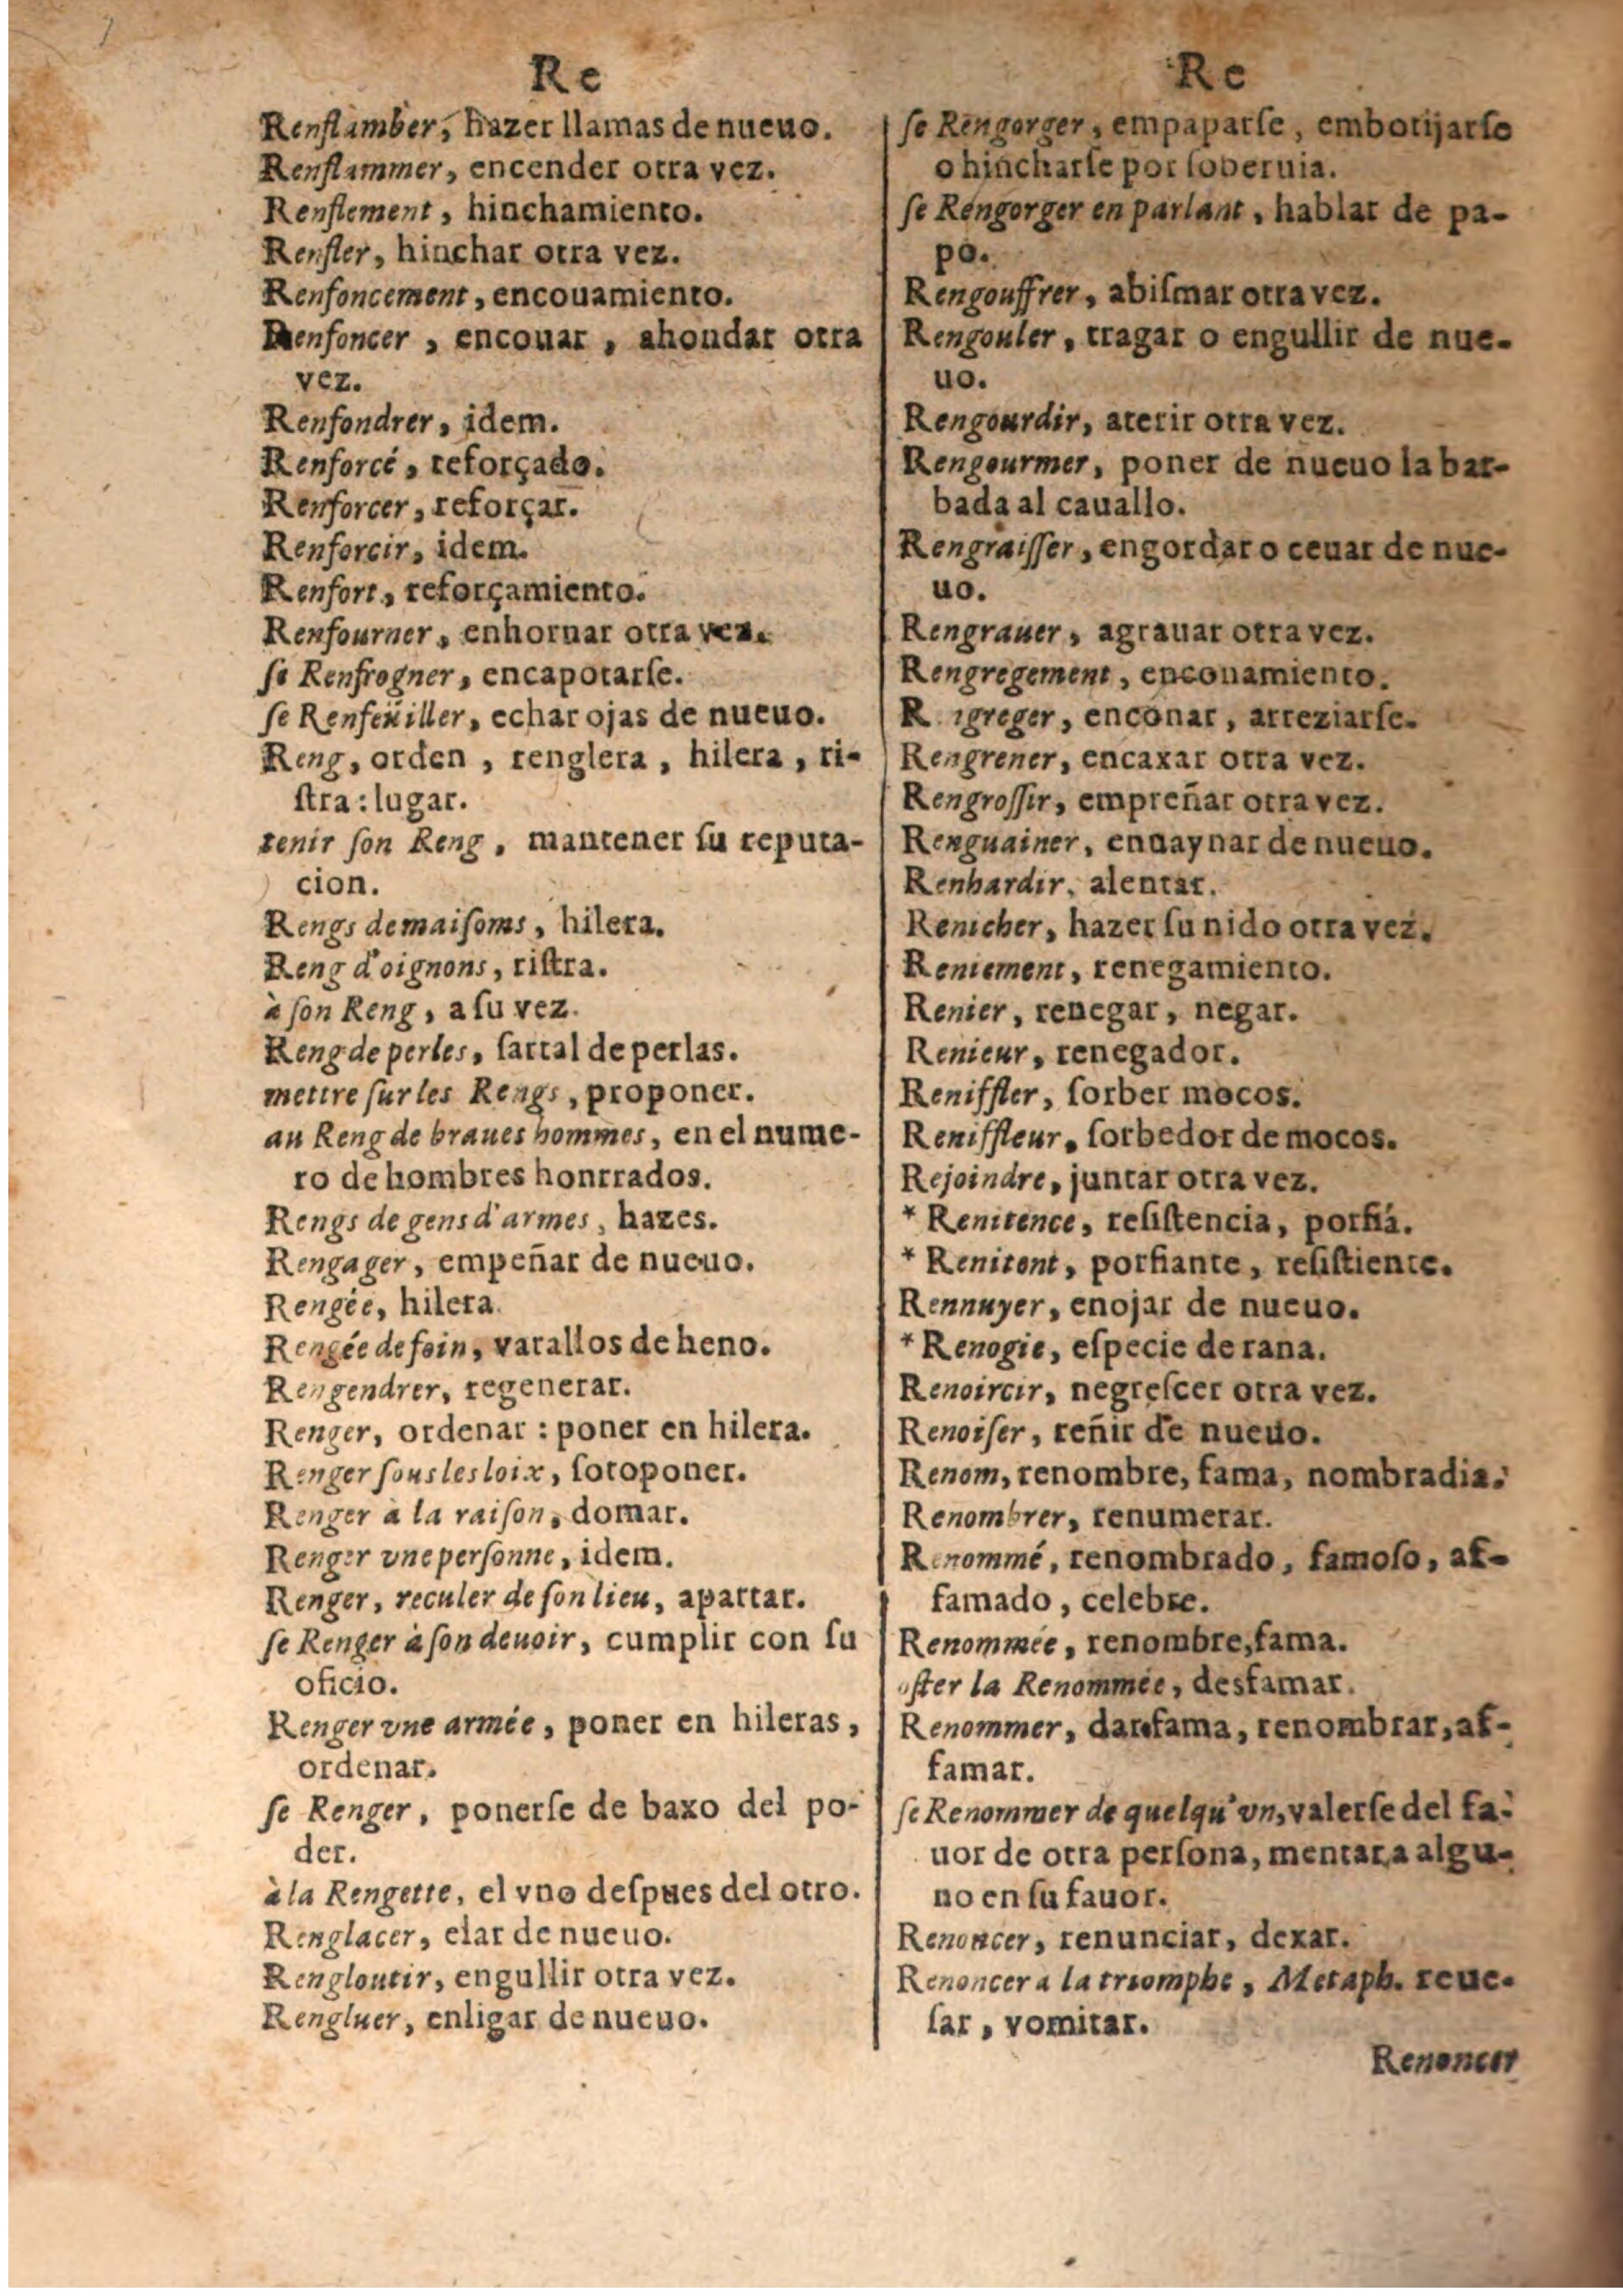 Re
Renflamber, hazer llamas de nueuo.
Renflammer, encender otra vez.
Renflement, hinchamiento.
Renfler, hinchar otra vez.
Renfoncement, encouamiento.
Renfoncer, encouar, ahondar otra
vez.
Renfondrer, idem.
Renforcé, reforçado.
Renforcer, reforçar.
Renforcir, idem.
Renfort, reforçamiento.
Renfourner, enhornar otra vez.
se Renfrogner, encapotarſe.
ſe Renfeüiller, echar ojas de nueuo.
Reng, orden, renglera, hilera, ri-
ſtra: lugar.
tenir ſon Reng, mantener ſu reputa-
cion.
Rengs de maiſoms, hilera.
Reng d'oignons, riſtra.
à ſon Reng, a ſu vez.
Reng de perles, ſartal de perlas.
mettre ſur les Rengs, proponer.
au Reng de braues hommes, en el nume-
ro de hombres honrrados.
Rengs de gens d'armes, hazes.
Rengager, empeñar de nueuo.
Rengée, hilera.
Rengée de foin, varallos de heno.
Rengendrer, regenerar.
Renger, ordenar: poner en hilera.
Renger ſous les loix, ſotoponer.
Renger à la raiſon, domar.
Renger vne perſonne, idem.
Renger, reculer de ſon lieu, apartar.
ſe Renger à ſon deuoir, cumplir con ſu
oficio.
Renger vne armée, poner en hileras,
ordenar.
ſe Renger, ponerſe de baxo del po-
der.
à la Rengette, el vno deſpues del otro.
Renglacer, elar de nueuo.
Rengloutir, engullir otra vez.
Rengluer, enligar de nueuo.
Re
ſe Rengorger, empaparſe, embotijarſe
o hincharſe por ſoberuia.
ſe Rengorger en parlant, hablar de pa-
po.
Rengouffrer, abiſmar otra vez.
Rengouler, tragar o engullir de nue-
uo.
Rengourdir, aterir otra vez.
Rengourmer, poner de nueuo la bar-
bada al cauallo.
Rengraiſſer, engordar o ceuar de nue-
uo.
Rengrauer, agrauar otra vez.
Rengregement, enconamiento.
R. igreger, enconar, arreziarſe.
Rengrener, encaxar otra vez.
Rengroſſir, empreñar otra vez.
Renguainer, enuaynar de nueuo.
Renhardir, alentar.
Renicher, hazer ſu nido otra vez.
Reniement, renegamiento.
Renier, renegar, negar.
Renieur, renegador.
Reniffler, ſorber mocos.
Reniffleur, ſorbedor de mocos.
Rejoindre, juntar otra vez.
* Renitence, reſiſtencia, porfia.
* Renitent, porfiante, reſiſtiente.
Rennuyer, enojar de nueuo.
* Renogie, eſpecie de rana.
Renoircir, negreſcer otra vez.
Renoiſer, reñir de nueuo.
Renom, renombre, fama, nombradia.
Renombrer, renumerar.
Renommé, renombrado, famoſo, af-
famado, celebre.
Renommée, renombre, fama.
oſter la Renommée, desfamar.
Renommer, dar fama, renombrar, af-
famar.
ſe Renommer de quelqu'vn, valerſe del fa-
uor de otra perſona, mentar a algu-
no en ſu fauor.
Renoncer, renunciar, dexar.
Renoncer a la triomphe, Metaph. reue-
ſar, vomitar.
Renoncer